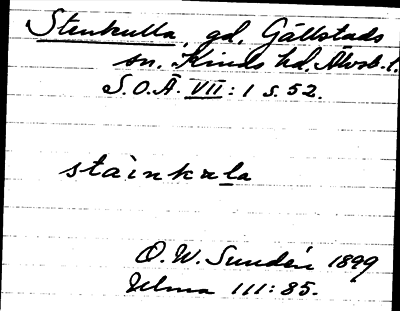 Stenkulla, gd. Gällstads
sn. Kinds hd. Älvsb. l.
S.O.Ä. VII: 1 s. 52.
stàinkula
O.W. Sundén 1899
Ulma 111: 85.